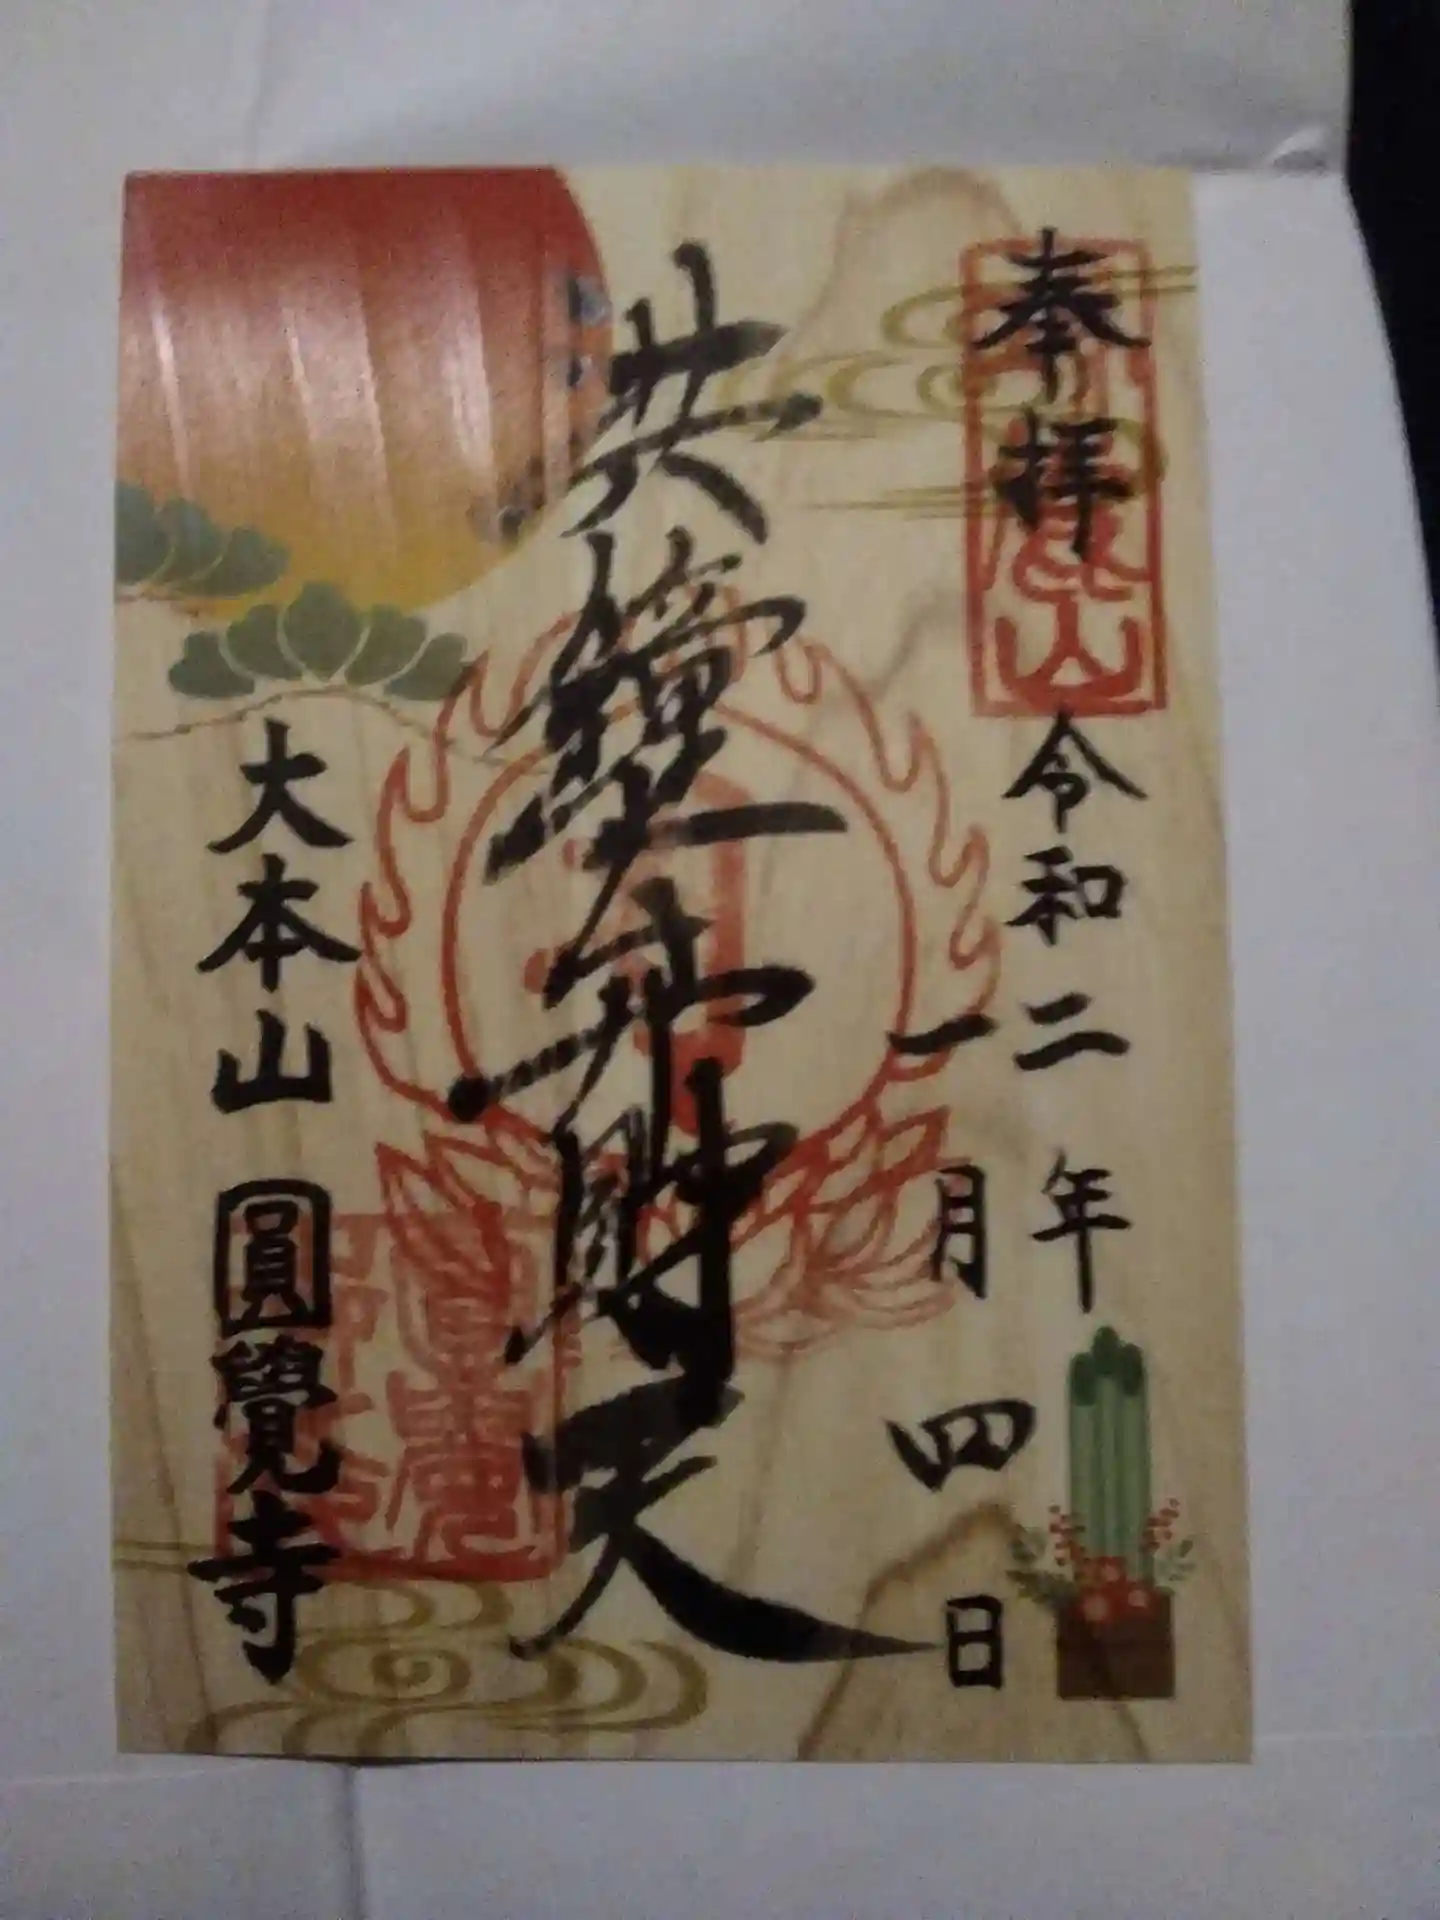 奉拝
令和二年
一月四日
弁財天
大本山 圓覺寺